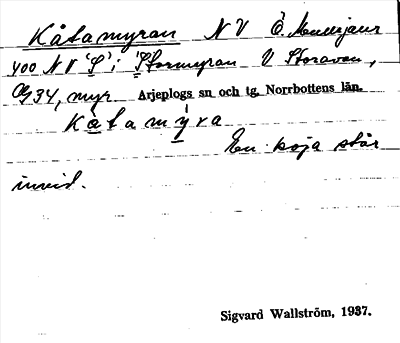 Kåtamyran NV Ö. Maudsjaur
400 NV "S" i Stormyran V Storavan,
Og34, myr Arjeplogs sn och tg. Norrbottens län.
kåtamýra
En koja står
invid.
Sigvard Wallström, 1937.